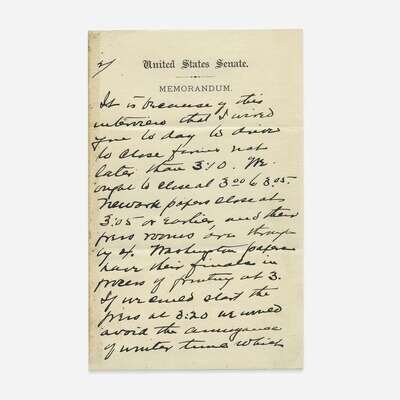 2/
United States Senate.
MEMORANDUM.
It is because of this
interview that I wired
you to day to
to close forms not
later than 3:10. We
ought to close at 3 00 to 3.05.
Newark papers close at
3:05 or earlier, and their
press rooms are through
by 4. Washington papers
have their finals in
process of printing at 3.
If we could start the
press at 3:20 we would
avoid the annoyance
of winter time which